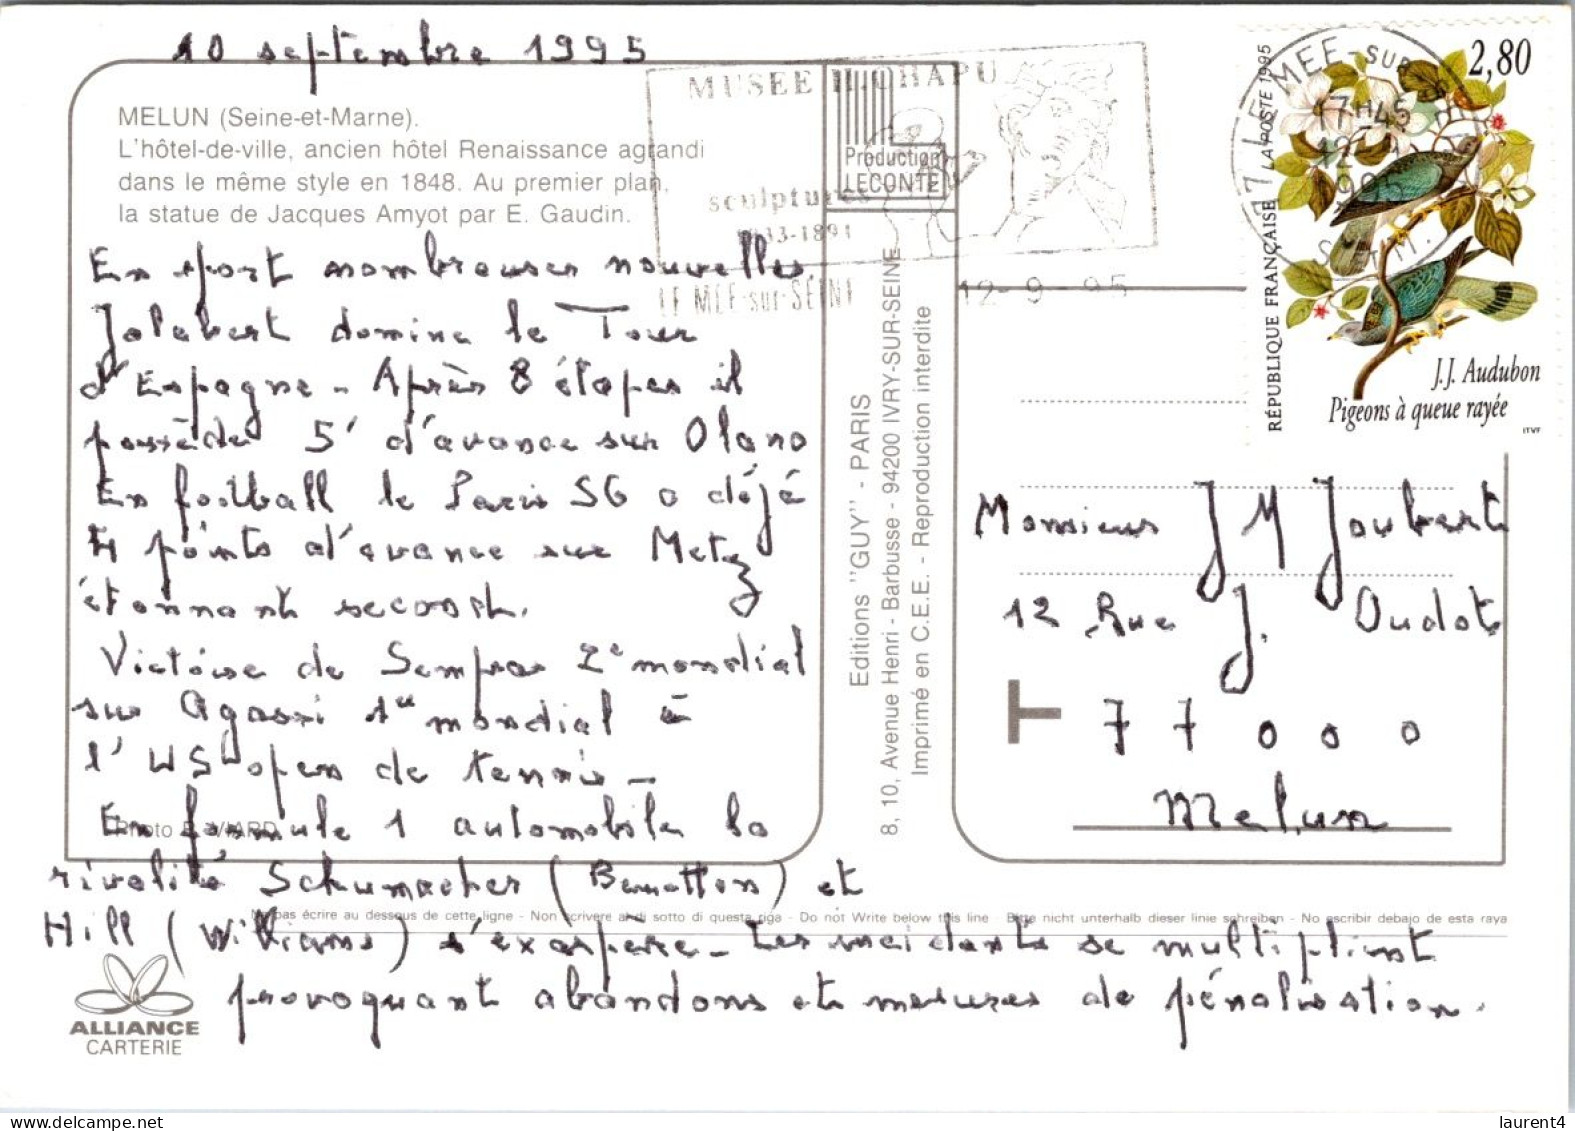 10 septembre 1995
MELUN (Seine-et-Marne).
L'hôtel-de-ville, ancien hôtel Renaissance agrandi
dans le même style en 1848. Au premier plan,
la statue de Jacques Amyot par E. Gaudin.
En sport nombreuses nouvelles.
Jalabert domine le Tour
d'Espagne - Après 8 étapes il
possède 5' d'avance sur Olano
En football le Paris SG a déjà
4 points d'avance sur Metz
étonnant second.
Victoire de Sampras 2e mondial
sur Agassi 1er mondial à
l'US open de tennis -
En formule 1 automobile la
rivalité Schumacher (Benetton) et
Hill (Williams) s'exaspère - Les incidents se multiplient
provoquant abandons et mesures de pénalisation.
Photo
Ne pas écrire au dessous de cette ligne - Non scrivere al di sotto di questa riga - Do not Write below this line - Bitte nicht unterhalb dieser linie schreiben - No escribir debajo de esta raya
ALLIANCE
CARTERIE
Production
LECONTE
Editions "GUY" - PARIS
8, 10, Avenue Henri - Barbusse - 94200 IVRY-SUR-SEINE
Imprimé en C.E.E. - Reproduction interdite
MUSEE H.CHAPU
sculptures
1833-1891
LE MEE-sur-SEINE
12-9-95
77 LE MEE-SUR
17H45
12-9
1995
S. ET M.
2,80
LA POSTE 1995
RÉPUBLIQUE FRANÇAISE
J.J. Audubon
Pigeons à queue rayée
ITVF
Monsieur J M Joubert
12 Rue J. Oudot
77000
Melun
laurent4